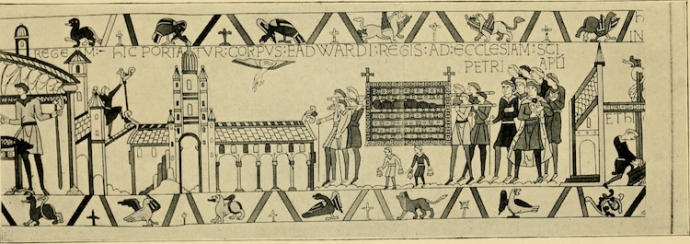 REGEM HIC PORTATVR: CORPVS: EADWARDI: REGIS: AD: ECCLESIAM: SCI
PETRI APLI
H
IN
ETH